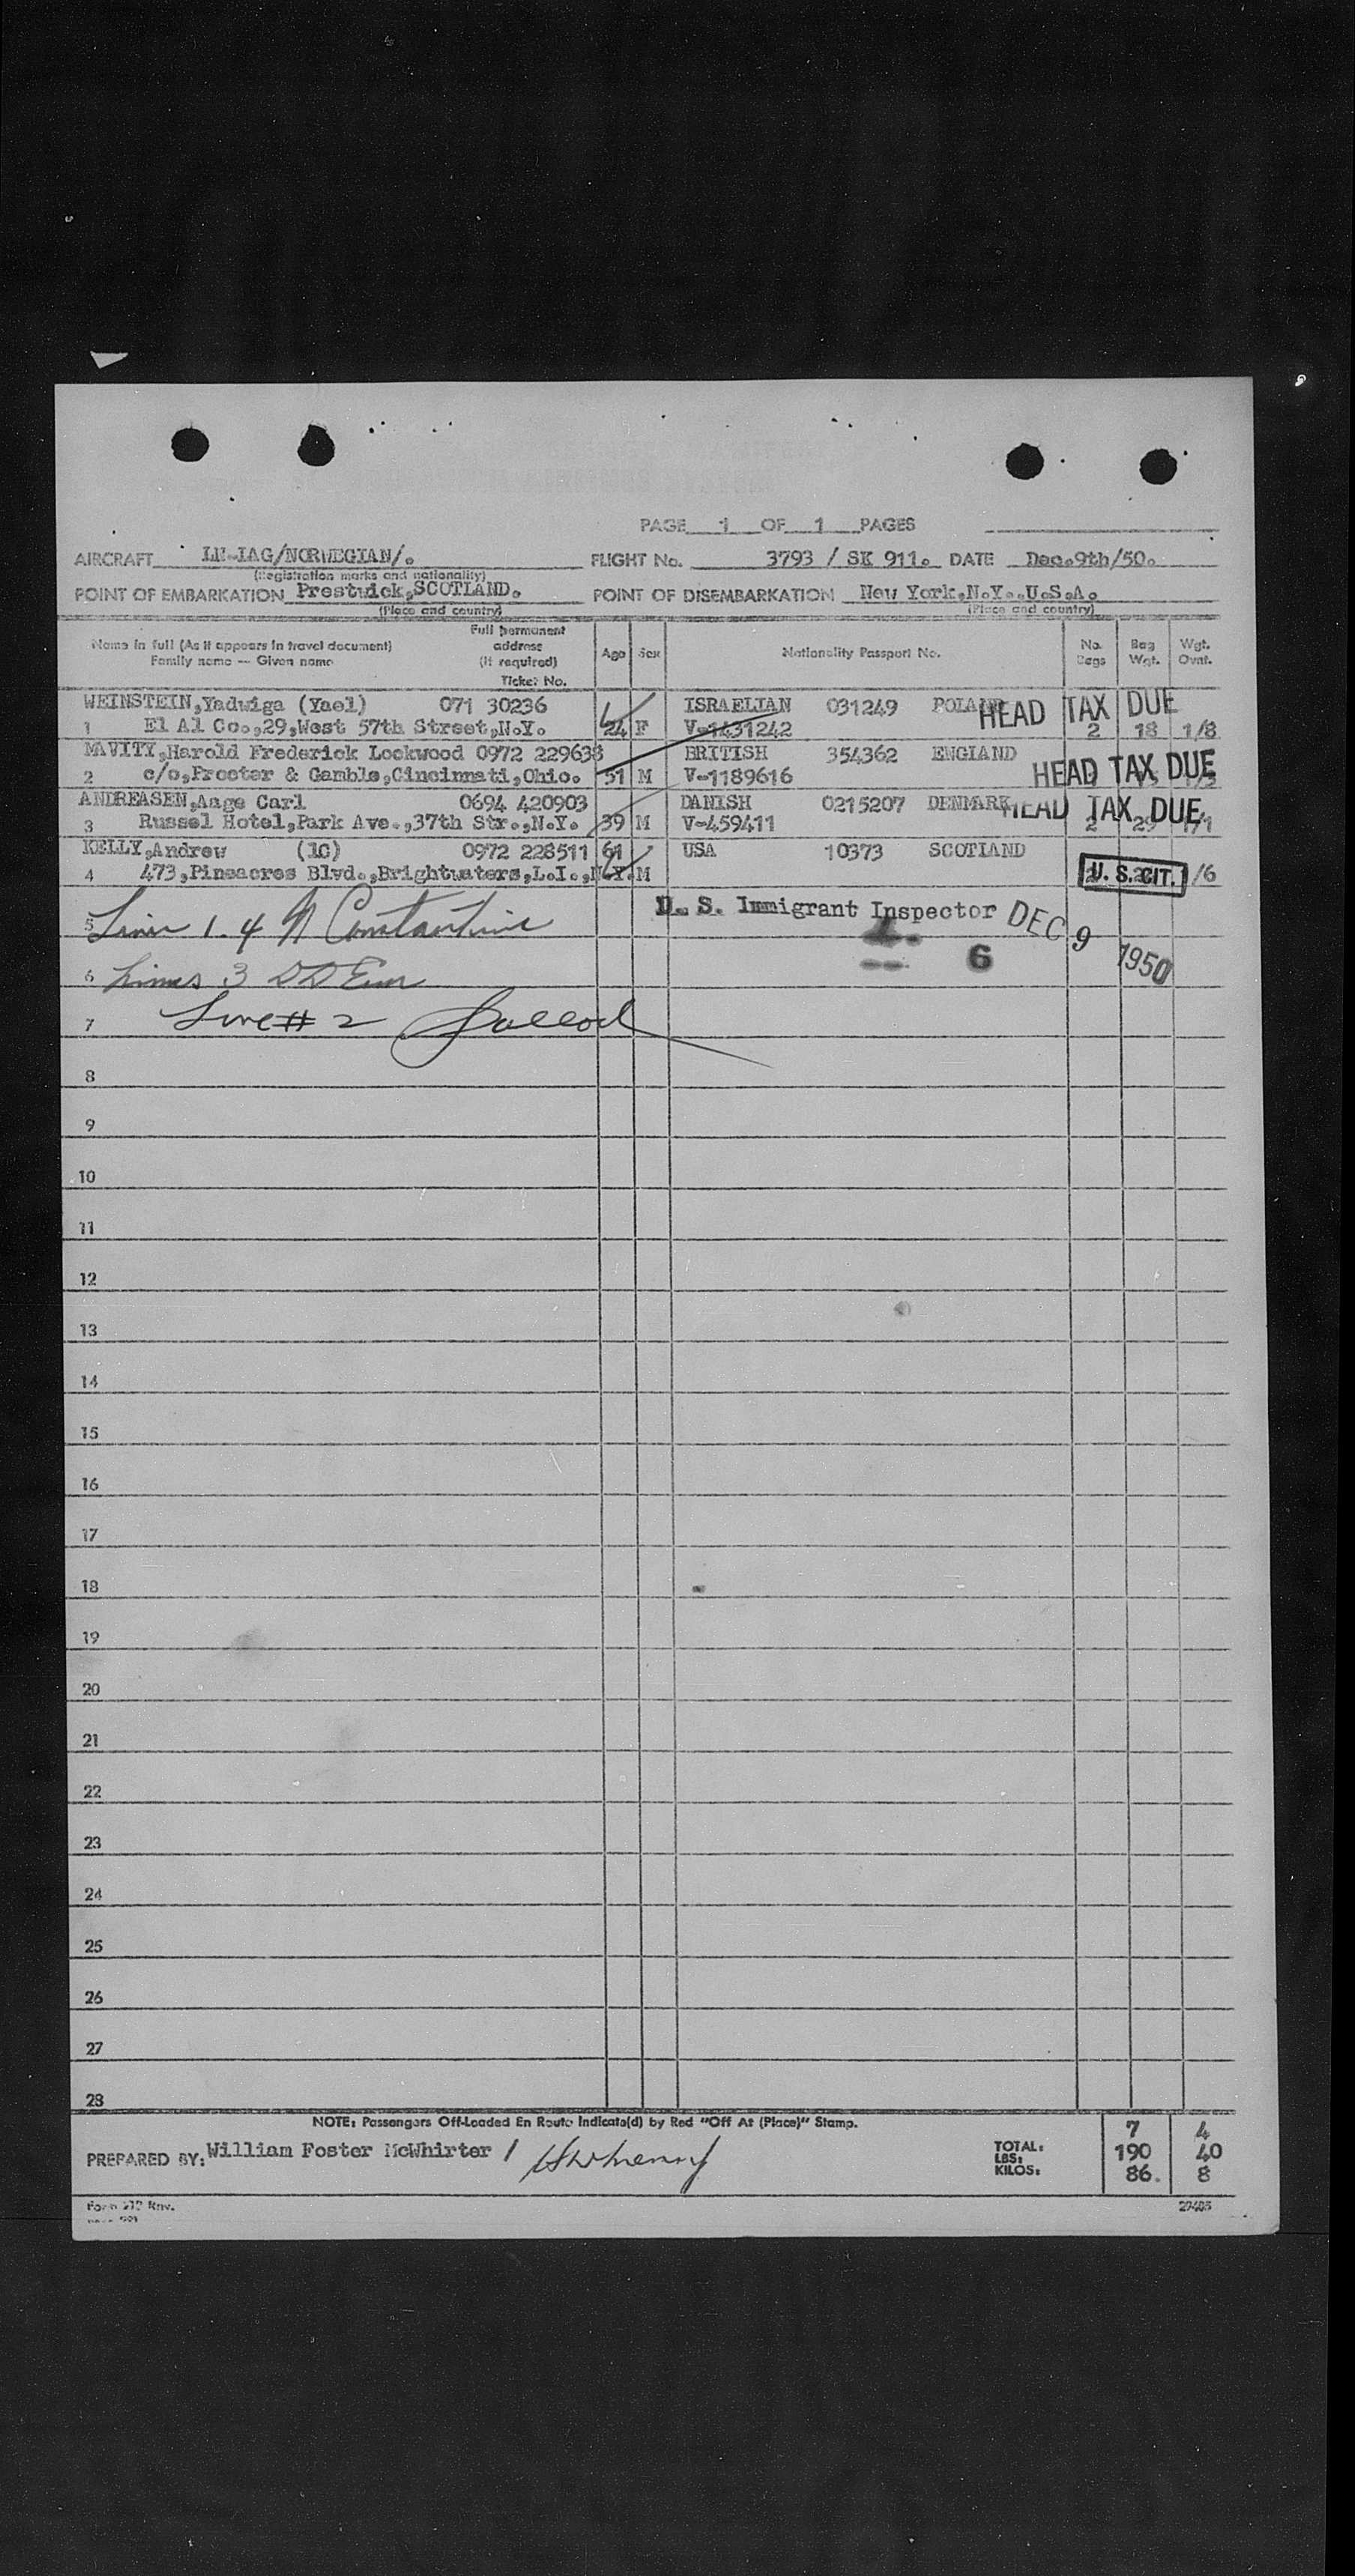 PAGE 1 OF 1 PAGES
AIRCRAFT LN-IAG/NORWEGIAN/. FLIGHT No. 3793 / SK 911. DATE Dec.9th/50.
(Registration marks and nationality)
POINT OF EMBARKATION Prestwick,SCOTLAND. POINT OF DISEMBARKATION New York,N.Y.,U.S.A.
(Place and country) (Place and country)
Name in full (As it appears in travel document) Family name — Given name Full permanent address (If required) Ticket No. Age Sex Nationality Passport No. No. Bags Bag Wgt. Wgt. Ovnt.
WEINSTEIN,Yadwiga (Yael) 071 30236 ISRAELIAN 031249 POLAND HEAD TAX DUE
1 El Al Co.,29,West 57th Street,N.Y. 24 F V-1431242 2 18 1/8
MAVITY,Harold Frederick Lockwood 0972 229638 BRITISH 354362 ENGLAND HEAD TAX DUE
2 c/o,Procter & Gamble,Cincinnati,Ohio. 51 M V-1189616
ANDREASEN,Aage Carl 0694 420903 DANISH 0215207 DENMARK HEAD TAX DUE
3 Russel Hotel,Park Ave.,37th Str.,N.Y. 39 M V-459411 2 29 1/1
KELLY,Andrew (1C) 0972 228511 61 USA 10373 SCOTLAND
4 473,Pineacres Blvd.,Brightwaters,L.I.,N.Y. M U. S. CIT. /6
U. S. Immigrant Inspector DEC 9 1950
5 1. 4 N Constantine
6
6 Lines 3 DD
7 Line # 2
8
9
10
11
12
13
14
15
16
17
18
19
20
21
22
23
24
25
26
27
28
NOTE: Passengers Off-Loaded En Route Indicate(d) by Red "Off At (Place)" Stamp.
PREPARED BY: William Foster McWhirter /
TOTAL: 7 4
LBS: 190 40
KILOS: 86. 8
Form Rev.